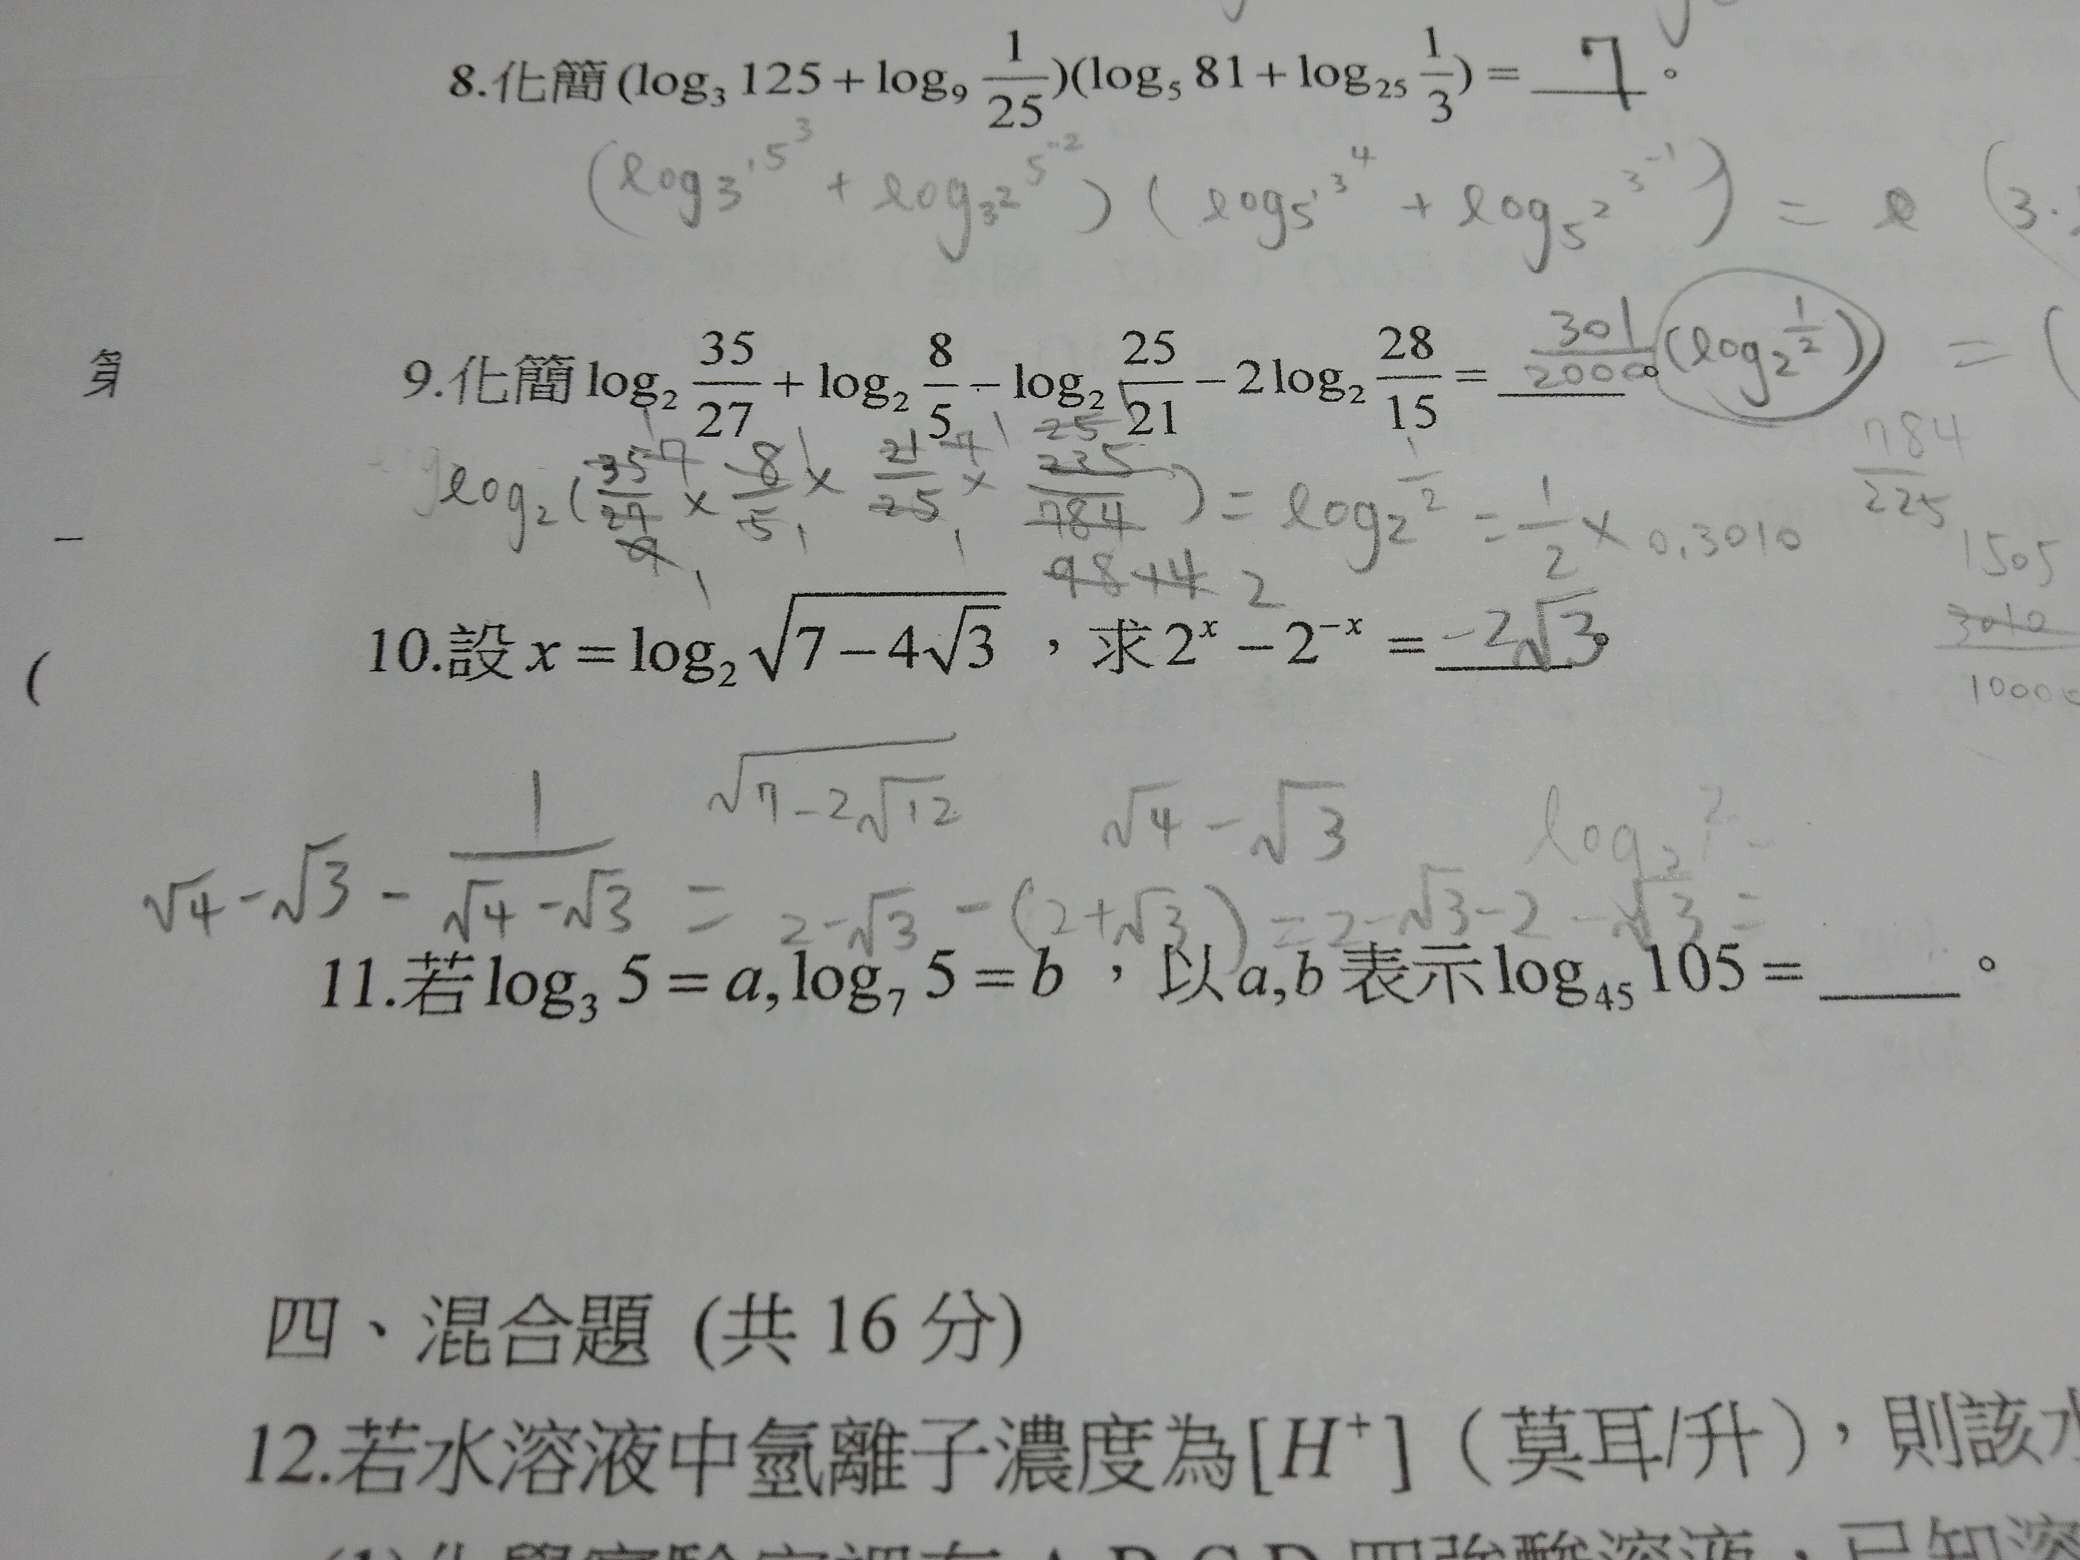 8.化簡 (log₃ 125 + log₉ 1/25)(log₅ 81 + log₂₅ 1/3) = 7 。
(log₃¹ 5³ + log₃² 5⁻²) (log₅¹ 3⁴ + log₅² 3⁻¹) = (3.
9.化簡 log₂ 35/27 + log₂ 8/5 − log₂ 25/21 − 2 log₂ 28/15 = 301/2000 。(log₂ 1/2) = (
第
log₂ (35/27 × 8/5 × 21/25 × 225/784) = log₂ 1/2 = 1/2 × 0.3010
784/225
1505
3010
10000
98 14 2
10.設 x = log₂ √(7 − 4√3) ，求 2ˣ − 2⁻ˣ = -2√3 。
(
√(7-2√12) √4 - √3 log₂
√4 - √3 - 1/(√4 - √3) = 2-√3 - (2+√3) = 2-√3-2-√3 =
11.若 log₃ 5 = a, log₇ 5 = b ，以 a,b 表示 log₄₅ 105 = ____ 。
四、混合題 (共 16 分)
12.若水溶液中氫離子濃度為[H⁺]（莫耳/升），則該水